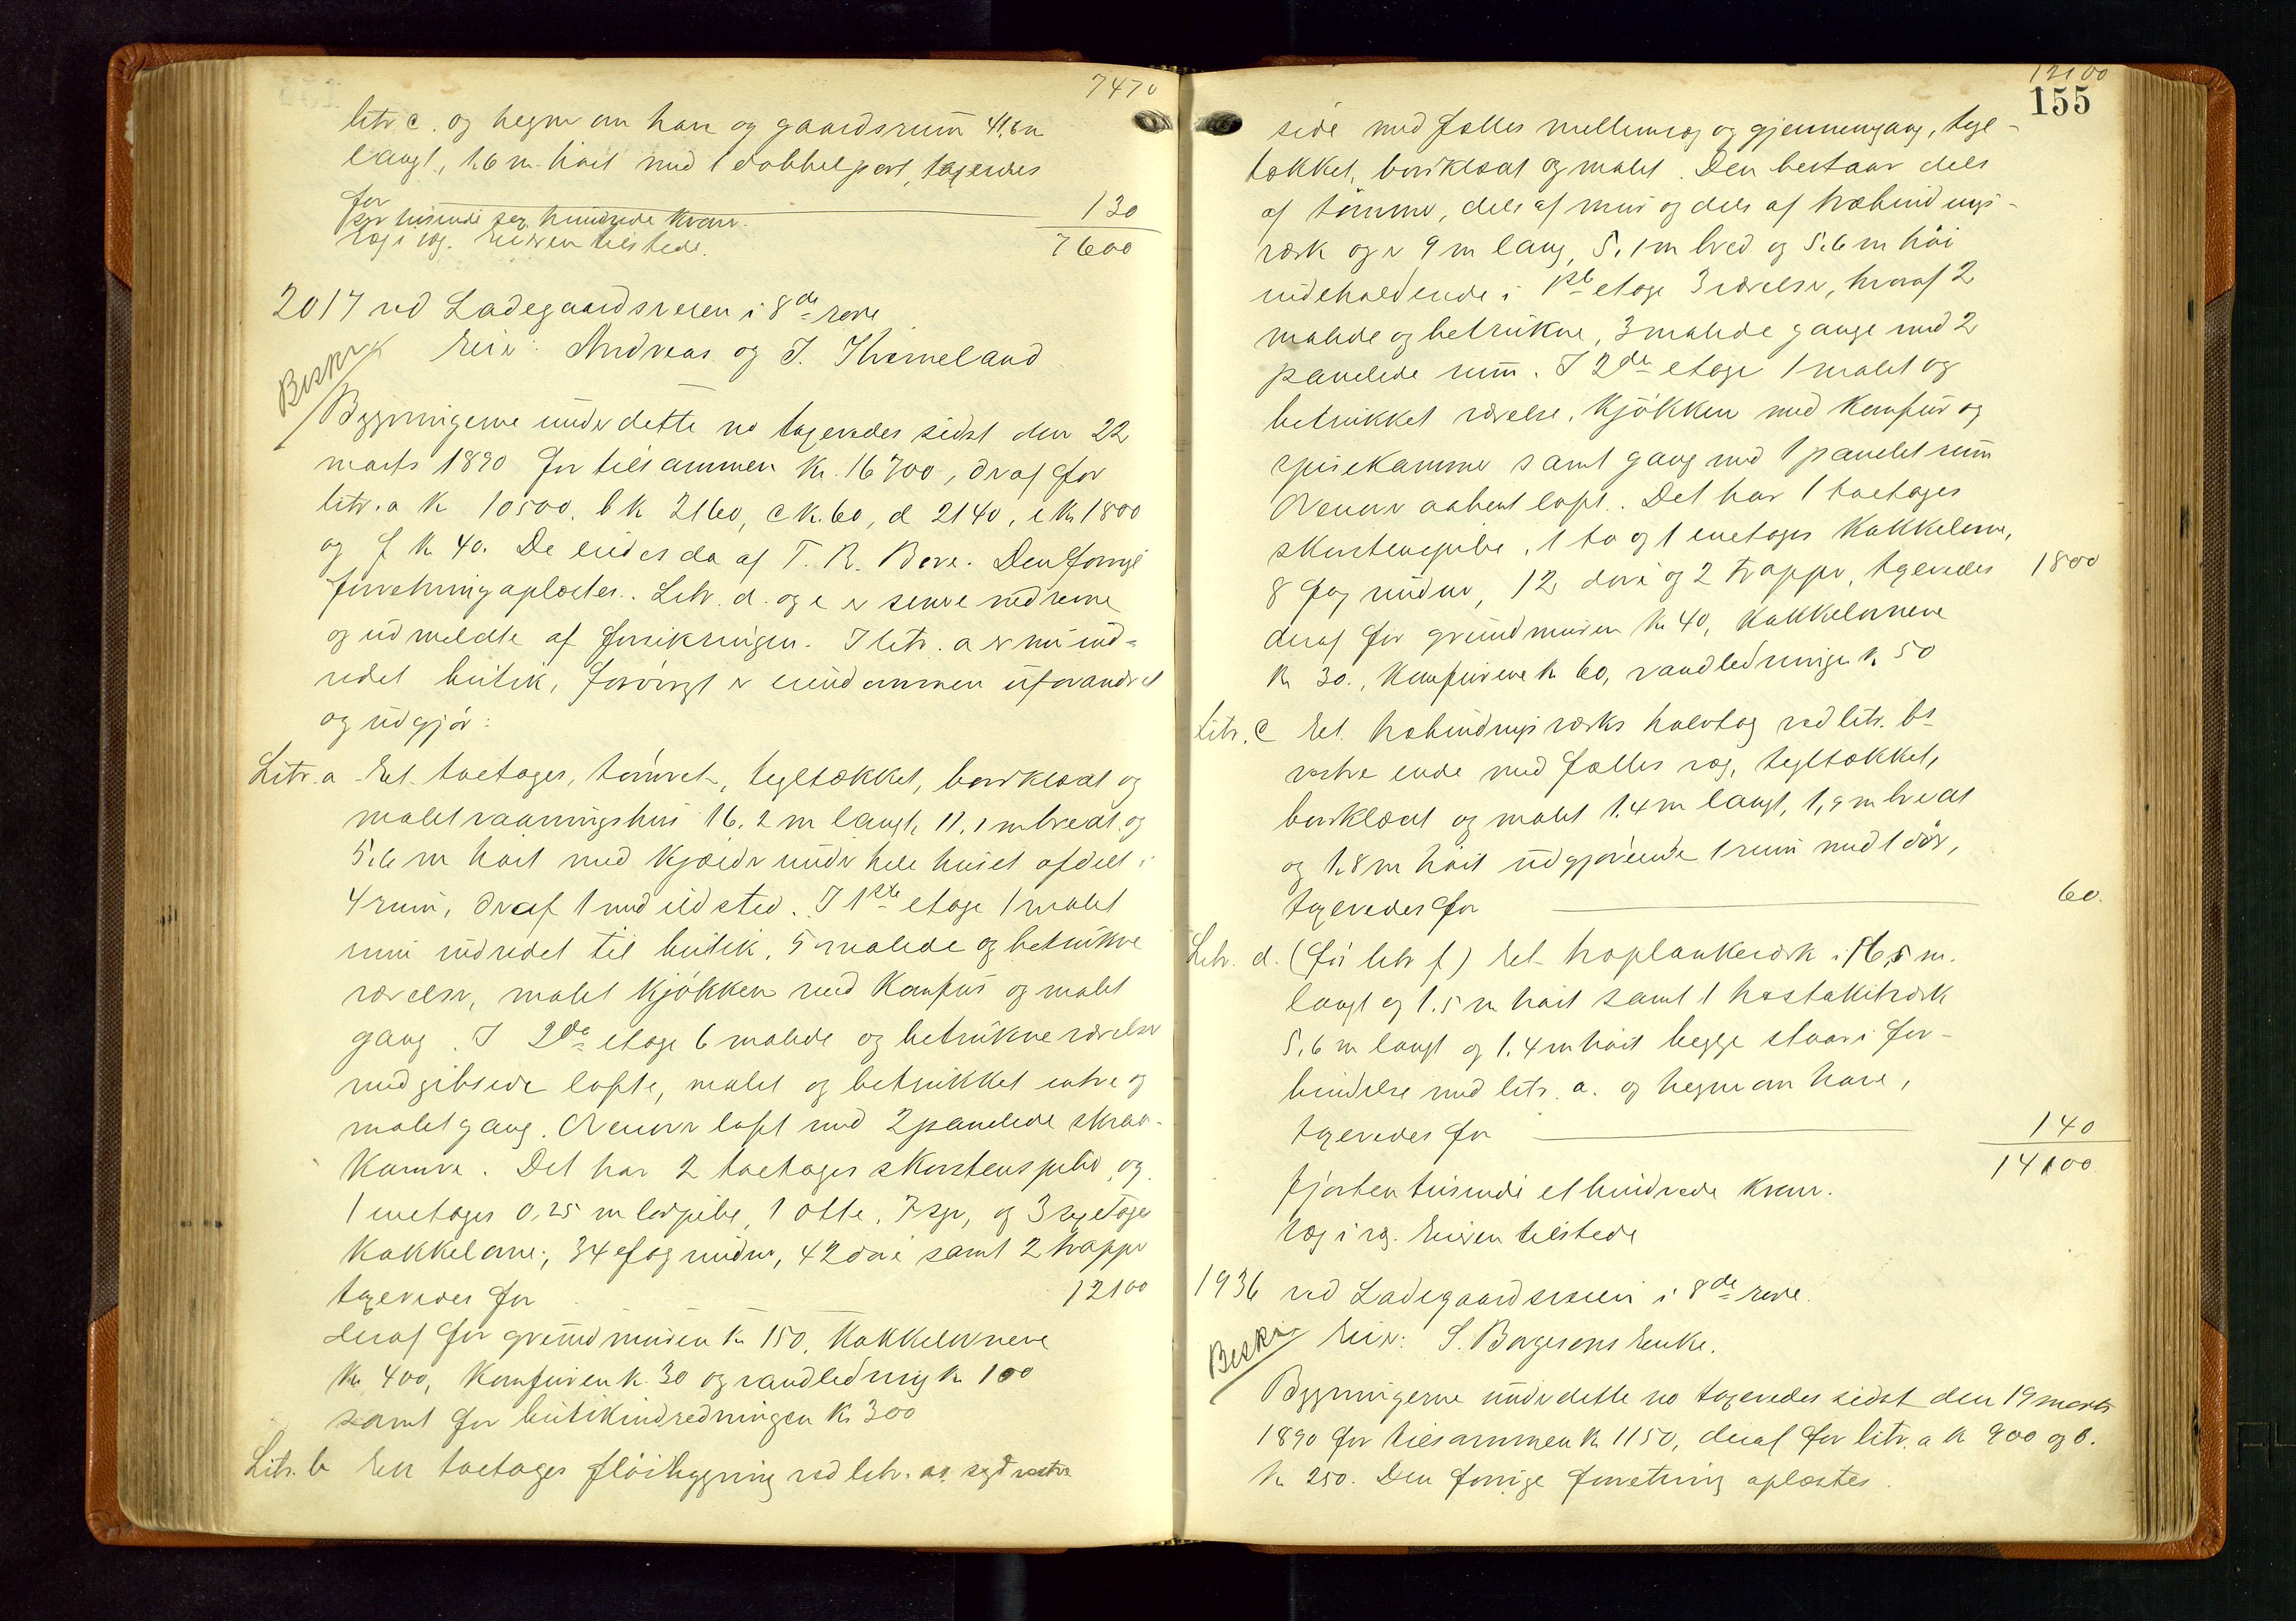 7470
litr. c. og hegn om have og gaardsrum 41,8 m
langt, 1.6 m. høit med 1 dobbelport, taxeredes
for 130
syv tusinde sex hundrede kroner. 7600
Tag i tag. Eieren tilstede.
2017 ved Ladegaardsveien i 8de rode
Beskr.
Eier: Andreas og T. Thorneland
Bygningerne under dette no taxeredes sidst den 22
marts 1890 for tilsammen kr. 16700, draf for
litr. a k 10500, b k 2160, c k. 60, d 2140, e kr 1800
og f kr 40. De eiedes da af T. R. Bore. Den forrige
forretning oplæstes. Litr. d. og e er senere nedrevne
og udmeldte af forsikringen. I litr. a er nu ind-
redet butik, forøvrigt er eiendommen uforandret
og udgjør:
Litr. a Et toetages, tømret, tegltækket, bordklædt og
malet vaaningshus 16,2 m langt, 11,1 m bredt og
5.6 m høit med kjælder under hele huset afdelt i
4 rum, draf 1 med ildsted. I 1ste etage 1 malet
rum indredet til butik, 5 malede og betrukne
værelser, malet kjøkken med komfur og malet
gang. I 2de etage 6 malede og betrukne værelser
med gibsede lofte, malet og betrukket entre og
malet gang. Ovenover loft med 2 panelede skraa-
kamre. Det har 2 toetages skorstenspiber, og
1 enetages 0,25 m lerpibe, 1 otte, 7 syv, og 3 sexetages
kakkelovne, 34 fag vinduer, 42 døre samt 2 trapper
taxeredes for 12100
deraf for grundmuren kr 150, kakkelovnene
kr 400, komfuren k. 30 og vandledning kr 100
samt for butikindredningen kr 300
Litr. b En toetages fløibygning ved litr. as. sydvestre
12100
155
side med fælles mellemvæg og gjennemgang, tegl-
tækket, bordklædt og malet. Den bestaar dels
af tømmer, dels af mur og dels af træbindings-
værk og er 9 m lang, 5.1 m bred og 5.6 m høi
indeholdende i 1ste etage 3 værelser, hvoraf 2
malede og betrukne, 3 malede gange med 2
panelede rum. I 2de etage 1 malet og
betrukket værelse, kjøkken med komfur og
spisekammer samt gang med 1 panelet rum
Ovenover aabent loft. Det har 1 toetages
skorstenspibe, 1 to og 1 enetages kakkelovne,
8 fag vinduer, 12 døre og 2 trapper, taxeredes 1800
deraf for grundmuren kr 40, kakkelovnene
kr 30., komfurene kr 60, vandledningen k. 50
Litr. C Et træbindingsværks halvtag ved litr. bs
vestre ende med fælles væg, tegltækket,
bordklædt og malet 1.4 m langt, 1,9 m bredt
og 1.8 m høit udgjørende 1 rum med 1 dør,
taxeredes for 60.
Litr. d. (før litr f) Et træplankeværk 16,5 m.
langt og 1.5 m høit samt 1 træstakitværk
5,6 m langt og 1.4 m høit begge staar i for-
bindelse med litr. a. og hegner om have,
taxeredes for 140
14100
fjorten tusinde et hundrede kroner.
Tag i tag. Eieren tilstede
1936 ved Ladegaardsveien i 8de rode.
Beskr.
Eier: S. Børgesens Enke.
Bygningerne under dette no taxeredes sidst den 19 marts
1890 for tilsammen kr 1150, deraf for litr. a kr 900 og b.
kr 250. Den forrige forretning oplæstes.